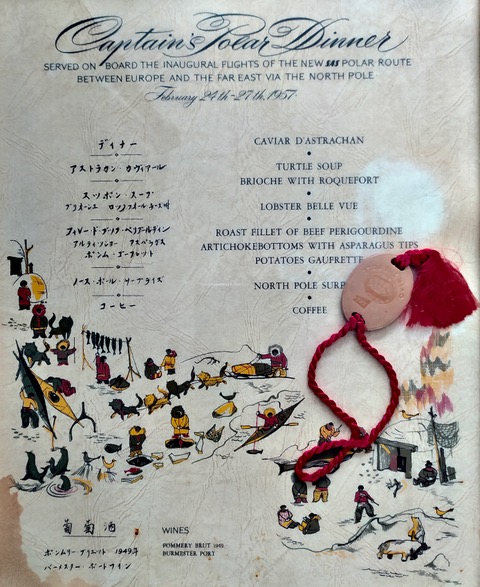 Captain's Polar Dinner
SERVED ON BOARD THE INAUGURAL FLIGHTS OF THE NEW SAS POLAR ROUTE
BETWEEN EUROPE AND THE FAR EAST VIA THE NORTH POLE
February 24th-27th, 1957.
ディナー
アストラカン・カヴィアール
スッポン・スープ
ブリオーシュ ロックフォールチーズ附
フィレード・ヴィーフ・ペリグールディン
アスペラガス
ポンム・ゴーフレット
ノース・ポール・サープライズ
コーヒー
CAVIAR D'ASTRACHAN
TURTLE SOUP
BRIOCHE WITH ROQUEFORT
LOBSTER BELLE VUE
ROAST FILLET OF BEEF PERIGOURDINE
ARTICHOKEBOTTOMS WITH ASPARAGUS TIPS
POTATOES GAUFRETTE
NORTH POLE SURP
COFFEE
葡萄酒
ポンムリー ブリュット 1949年
バーメスター ポートワイン
WINES
POMMERY BRUT 1949
BURMESTER PORT